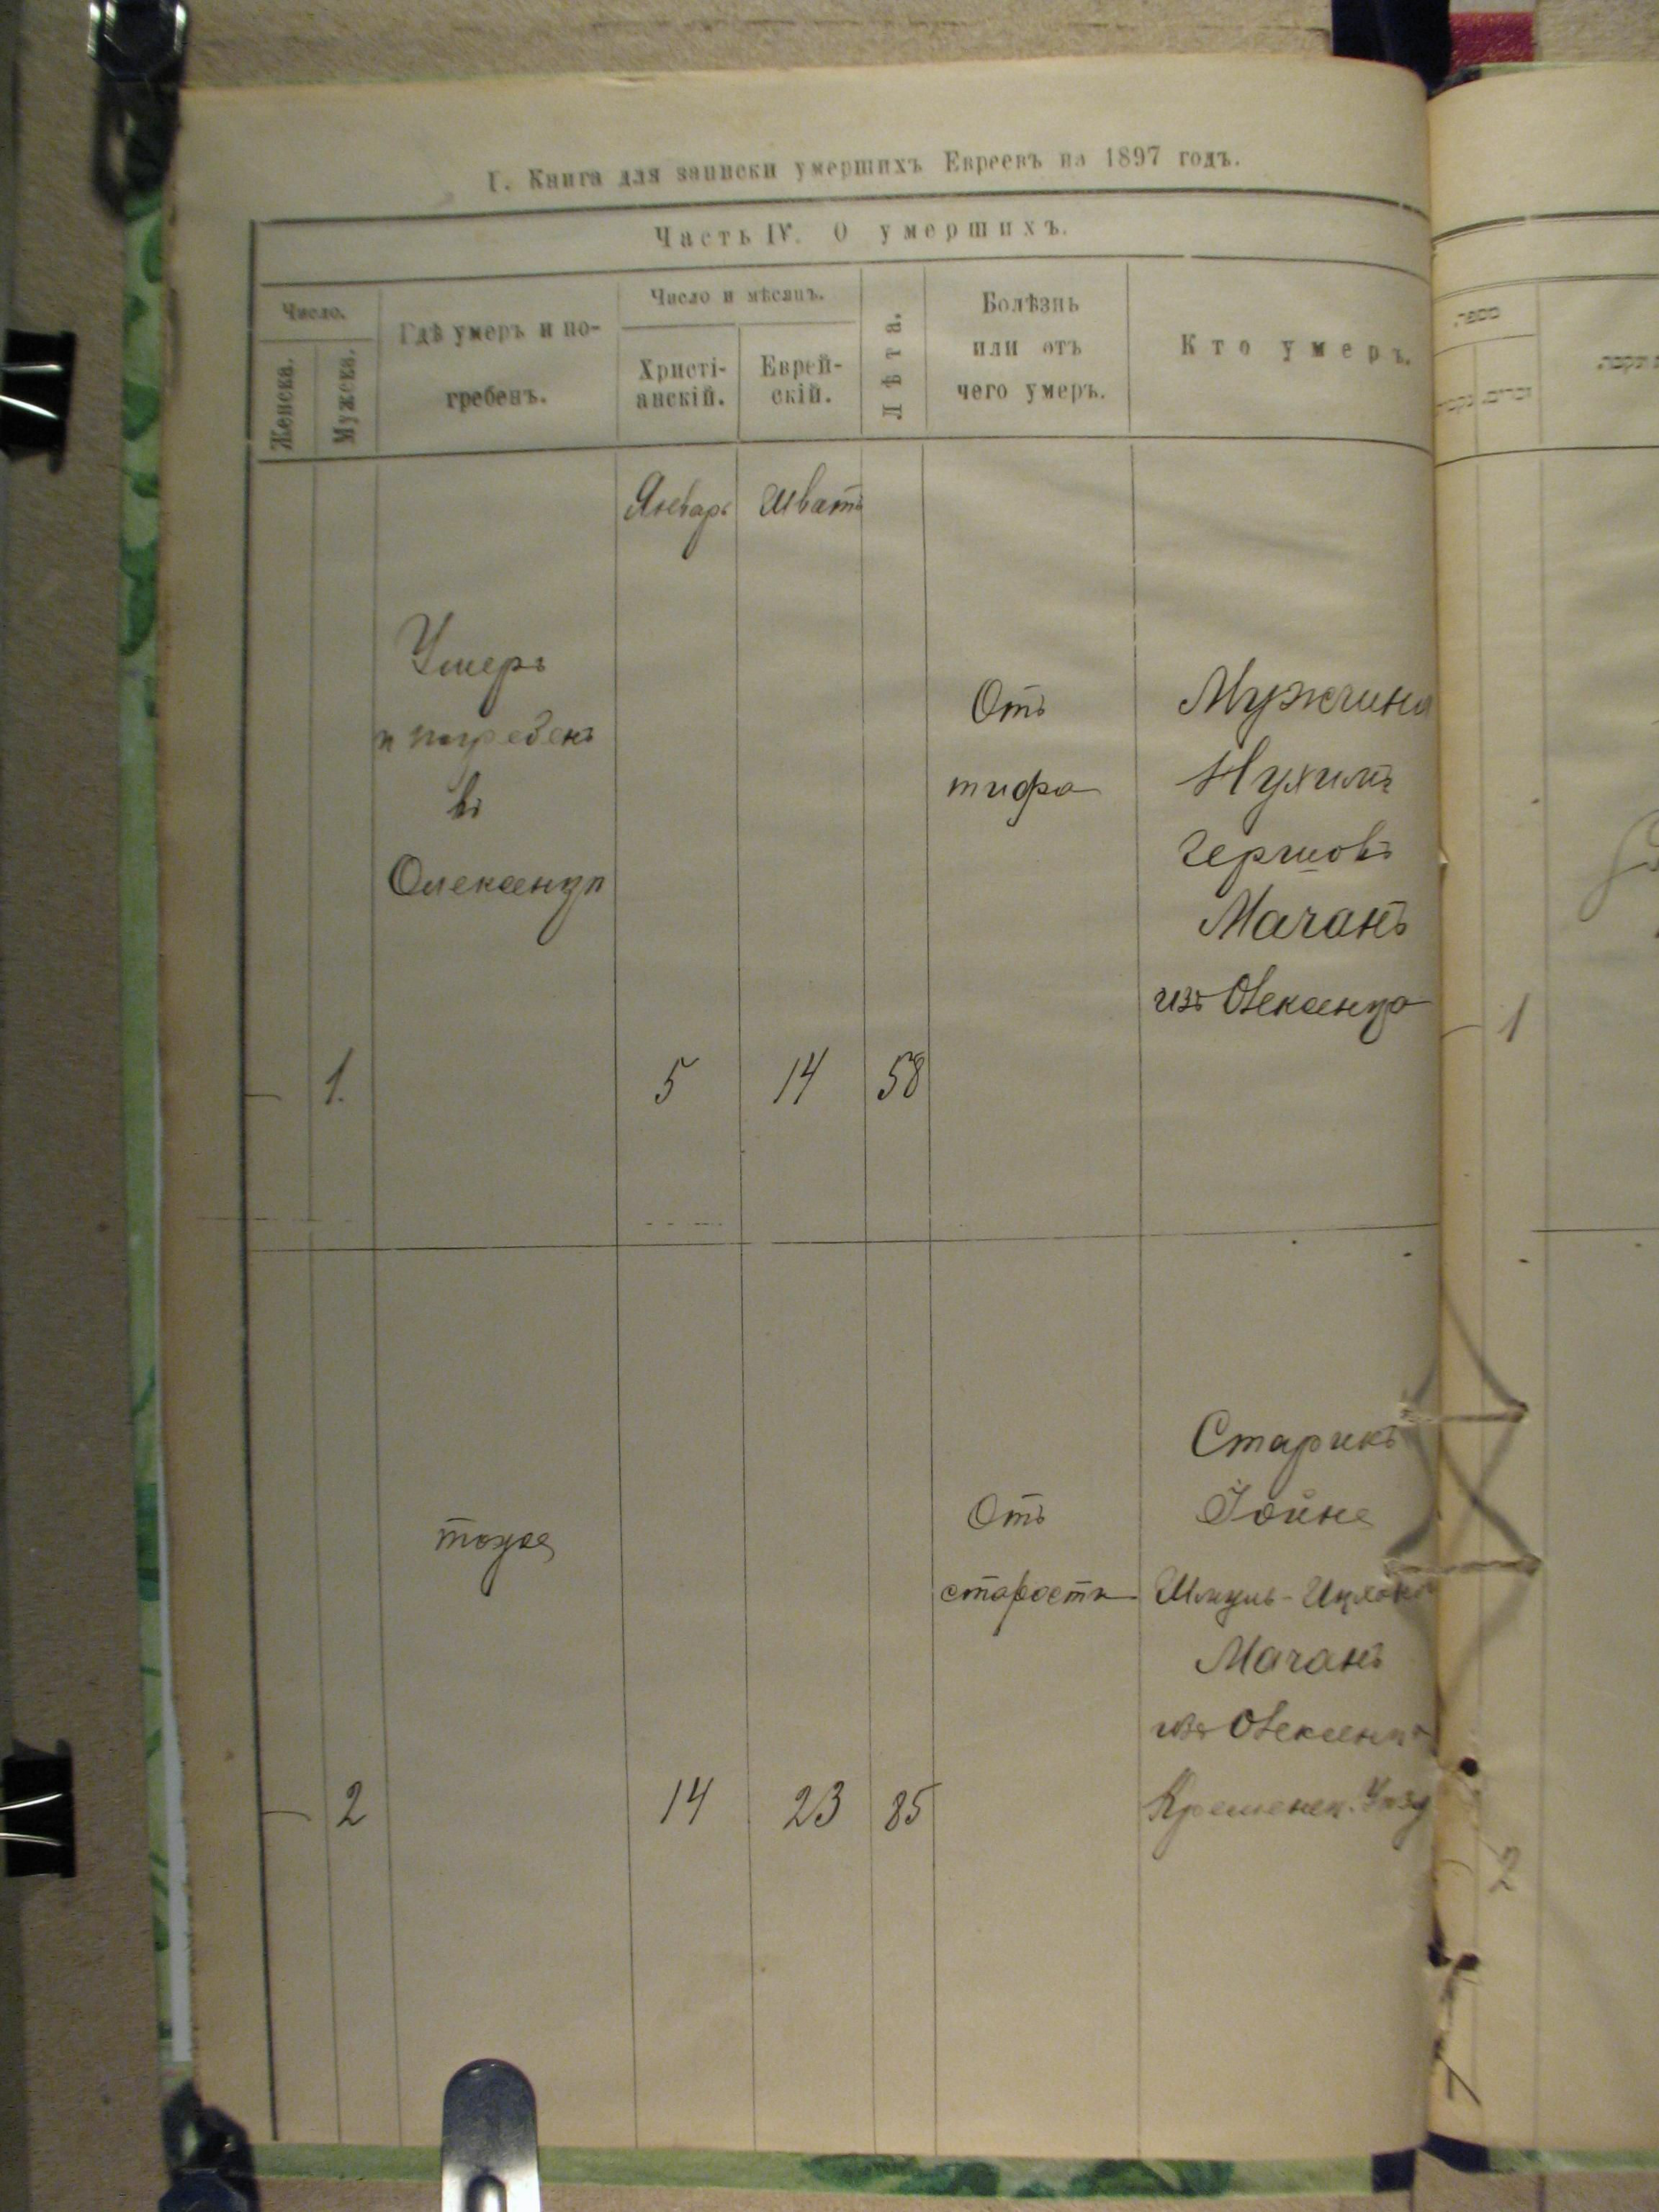 I. Книга для записки умершихъ Евреевъ на 1897 годъ.
Часть IV. О умершихъ.
Число.
Женска.
Мужска.
Гдѣ умеръ и по-
гребенъ.
Число и мѣсяцъ.
Христі-
анскій.
Еврей-
скій.
Лѣта.
Болѣзнь
или отъ
чего умеръ.
Кто умеръ.
Январь Шватъ
Умеръ
и погребенъ
въ
Отъ
тифа
Мужчина
Нухимъ
Гершовъ
Мачанъ
изъ
1. 5 14 58
тоже
Отъ
старости
Старикъ
Іойне
Шмуль-
Мачанъ
изъ
Кременец. Уѣзд
2 14 23 85
1
2
7